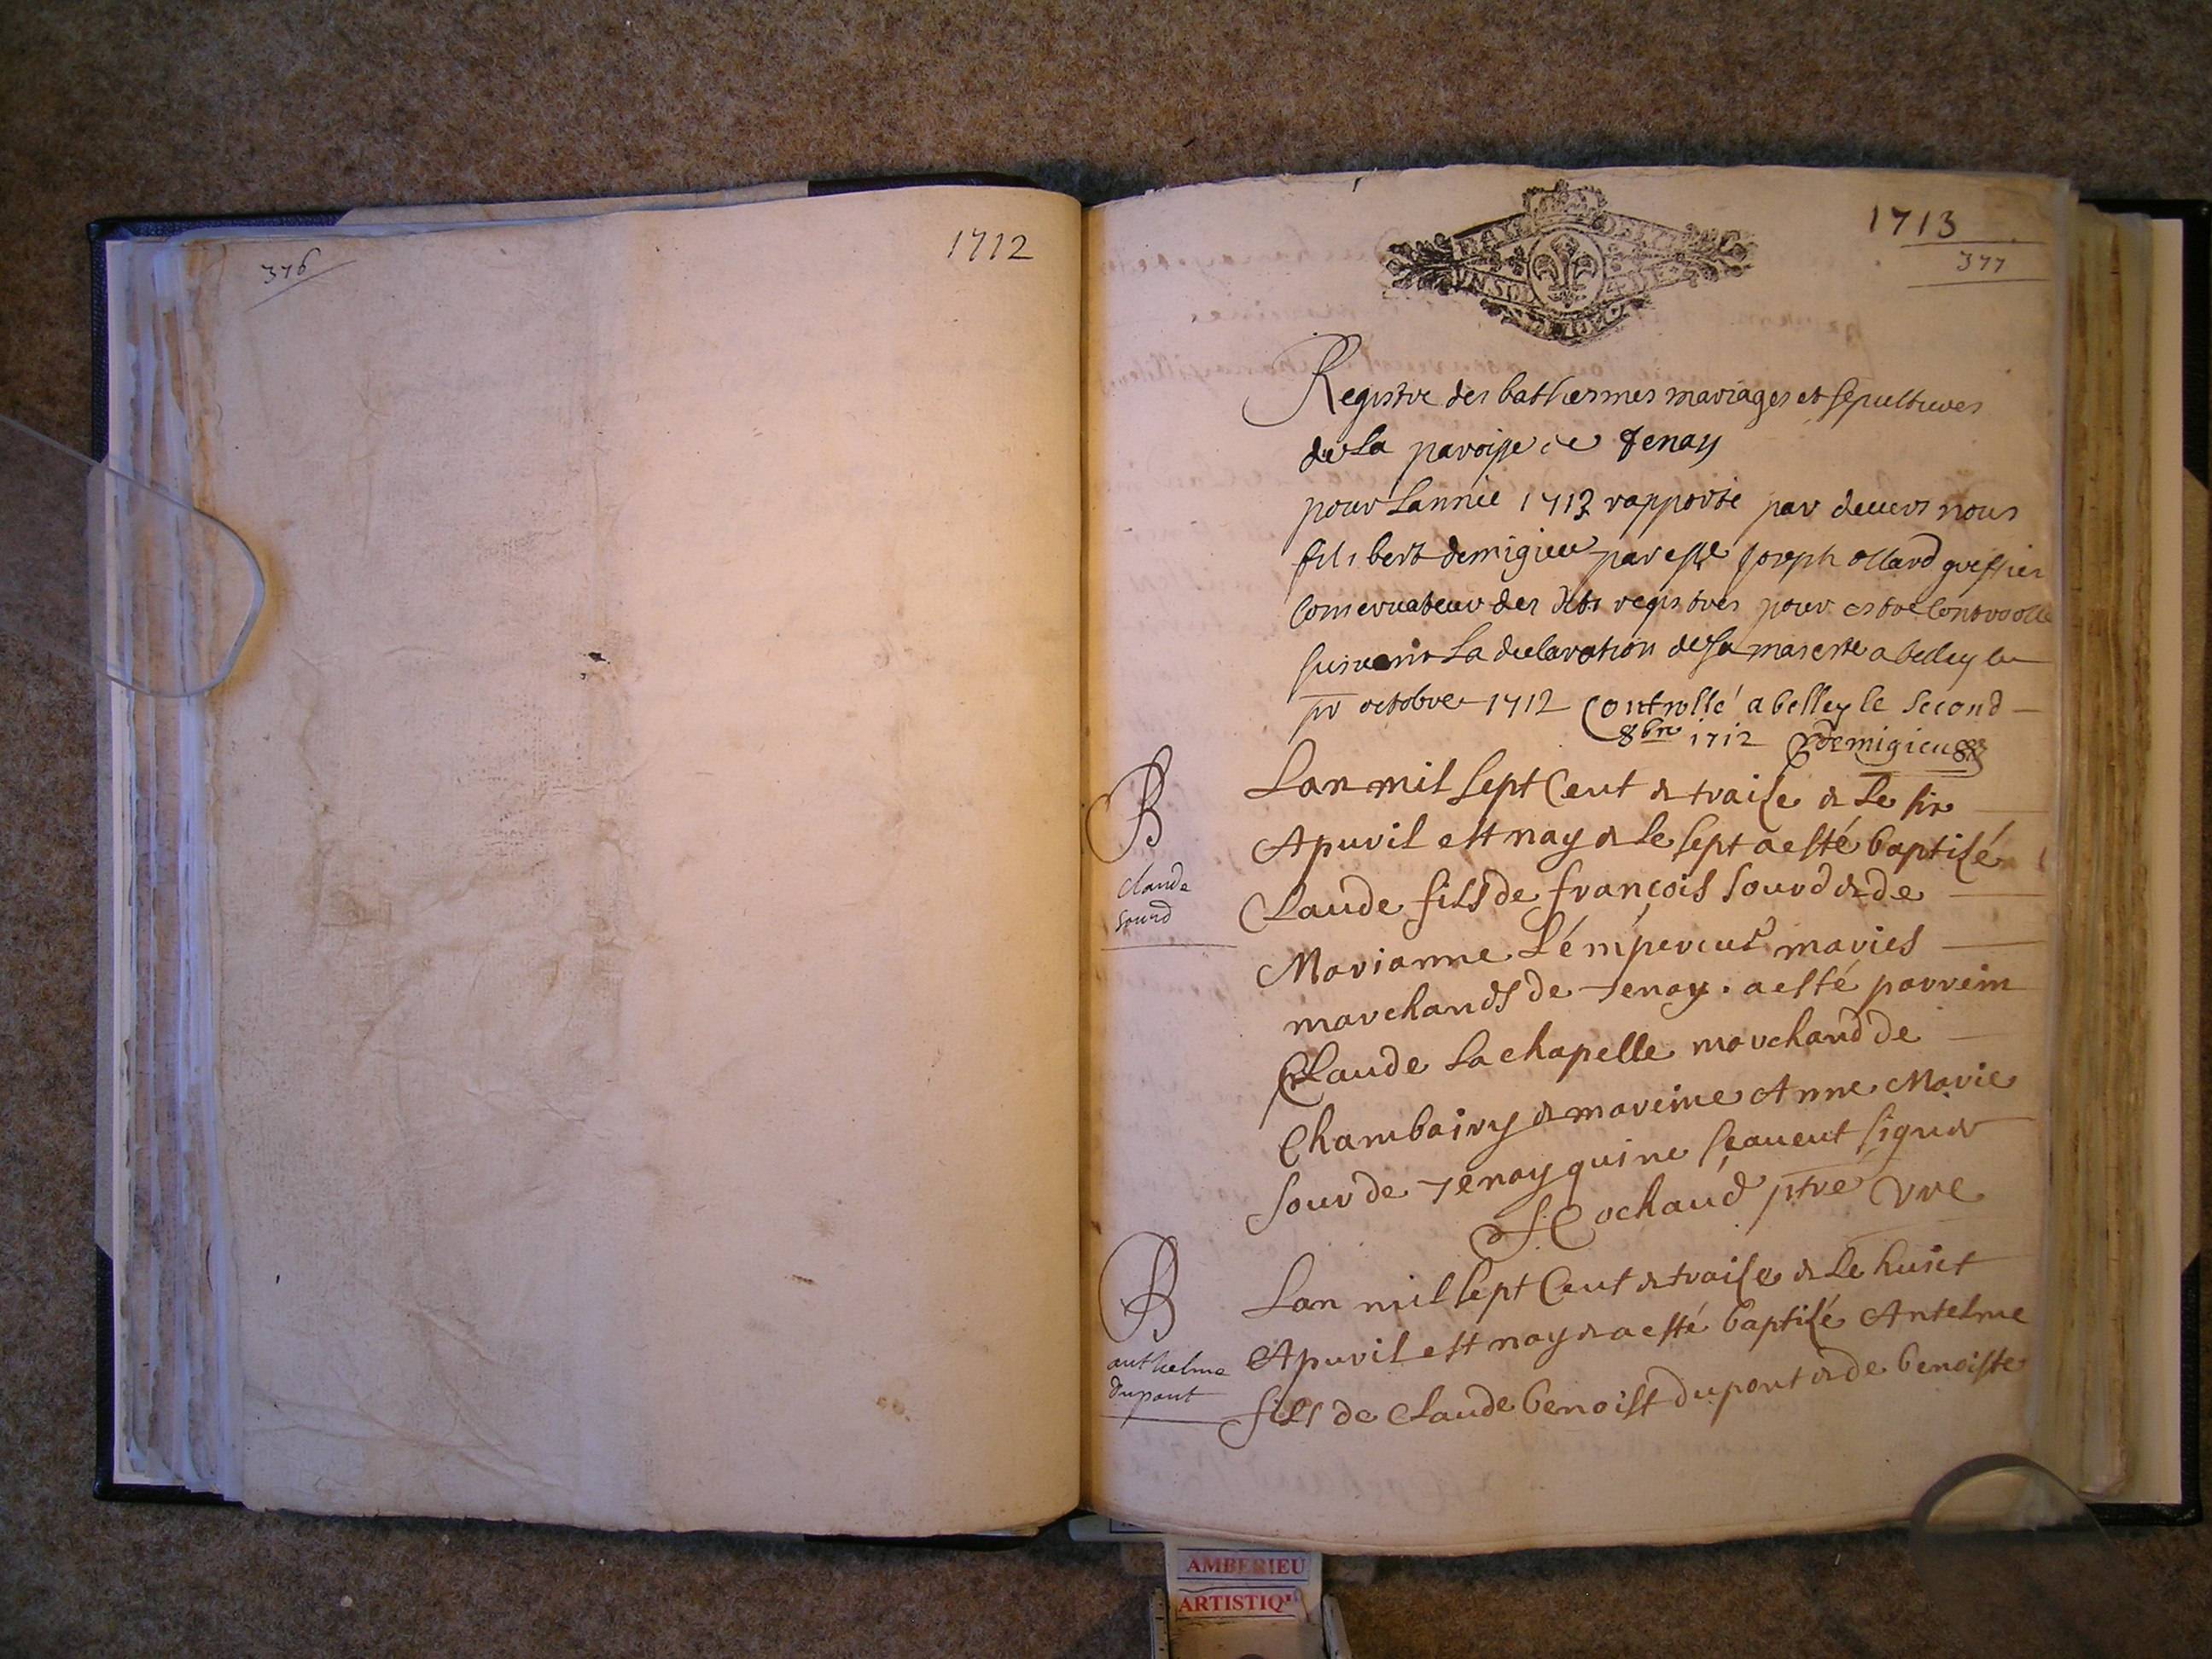 376
1712
1713
377
Registre des bathesmes mariages et sepultures
de la paroisse de Tenay
pour Lannée 1713 rapporté par devers nous
filibert demigieu par Joseph ollard greffier
Conservateur des dits registres pour estre Controolle
suivant La declaration de sa maieste a belley le
pr octobre 1712 Controllé a belley le second
8bre 1712 demigieu
B
claude
sourd
Lan mil sept Cent & traise & Le six
Apuril est nay & le sept a esté baptisé
Claude fils de françois sourd & de
Marianne Lémpereur mariés
marchands de Tenay. a esté parrein
Claude Lachapelle marchand de
Chambairy & mareine Anne Marie
sour de Tenay qui ne sçauent signer
Cochaud ptre vre
B
anthelme
dupont
Lan mil sept Cent & traise & Le huict
Apuril est nay & a esté baptisé Antelme
fils de Claude benoist dupont & de benoiste
AMBERIEU
ARTISTIQ